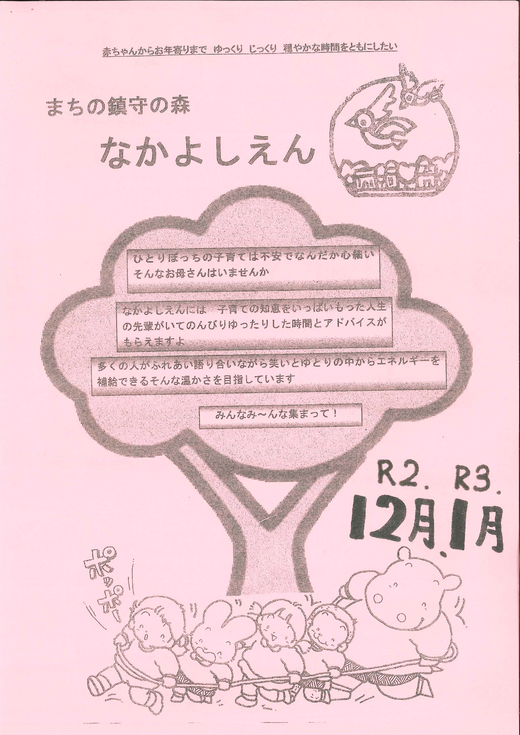 赤ちゃんからお年寄りまで ゆっくり じっくり 穏やかな時間をともにしたい
まちの鎮守の森
なかよしえん
ひとりぼっちの子育ては不安でなんだか心細い
そんなお母さんはいませんか
なかよしえんには 子育ての知恵をいっぱいもった人生
の先輩がいてのんびりゆったりした時間とアドバイスが
もらえますよ
多くの人がふれあい語り合いながら笑いとゆとりの中からエネルギーを
補給できるそんな温かさを目指しています
みんなみ~んな集まって!
R2. R3.
12月、1月
ポッポー